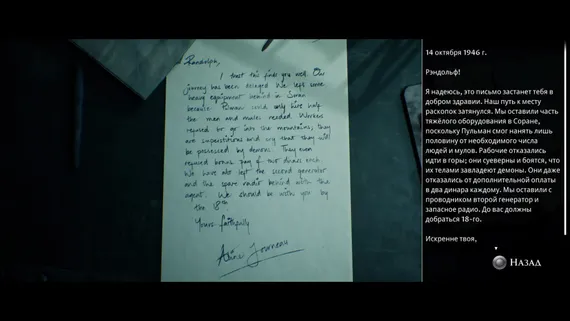 Randolph,
I trust this finds you well. Our
journey has been delayed. We left some
heavy equipment behind in
because could only hire half
the men and mules needed. Workers
refused to go into the mountains; they
are superstitious and say that they will
be possessed by demons. They even
refused bonus pay of two dinars each.
We have also left the second generator
and the spare radio behind with the
agent. We should be with you by
the 18th.
Yours faithfully
14 октября 1946 г.
Рэндольф!
Я надеюсь, это письмо застанет тебя в
добром здравии. Наш путь к месту
раскопок затянулся. Мы оставили часть
тяжёлого оборудования в Соране,
поскольку Пульман смог нанять лишь
половину от необходимого числа
людей и мулов. Рабочие отказались
идти в горы; они суеверны и боятся, что
их телами завладеют демоны. Они даже
отказались от дополнительной оплаты
в два динара каждому. Мы оставили с
проводником второй генератор и
запасное радио. До вас должны
добраться 18-го.
Искренне твоя,
Назад